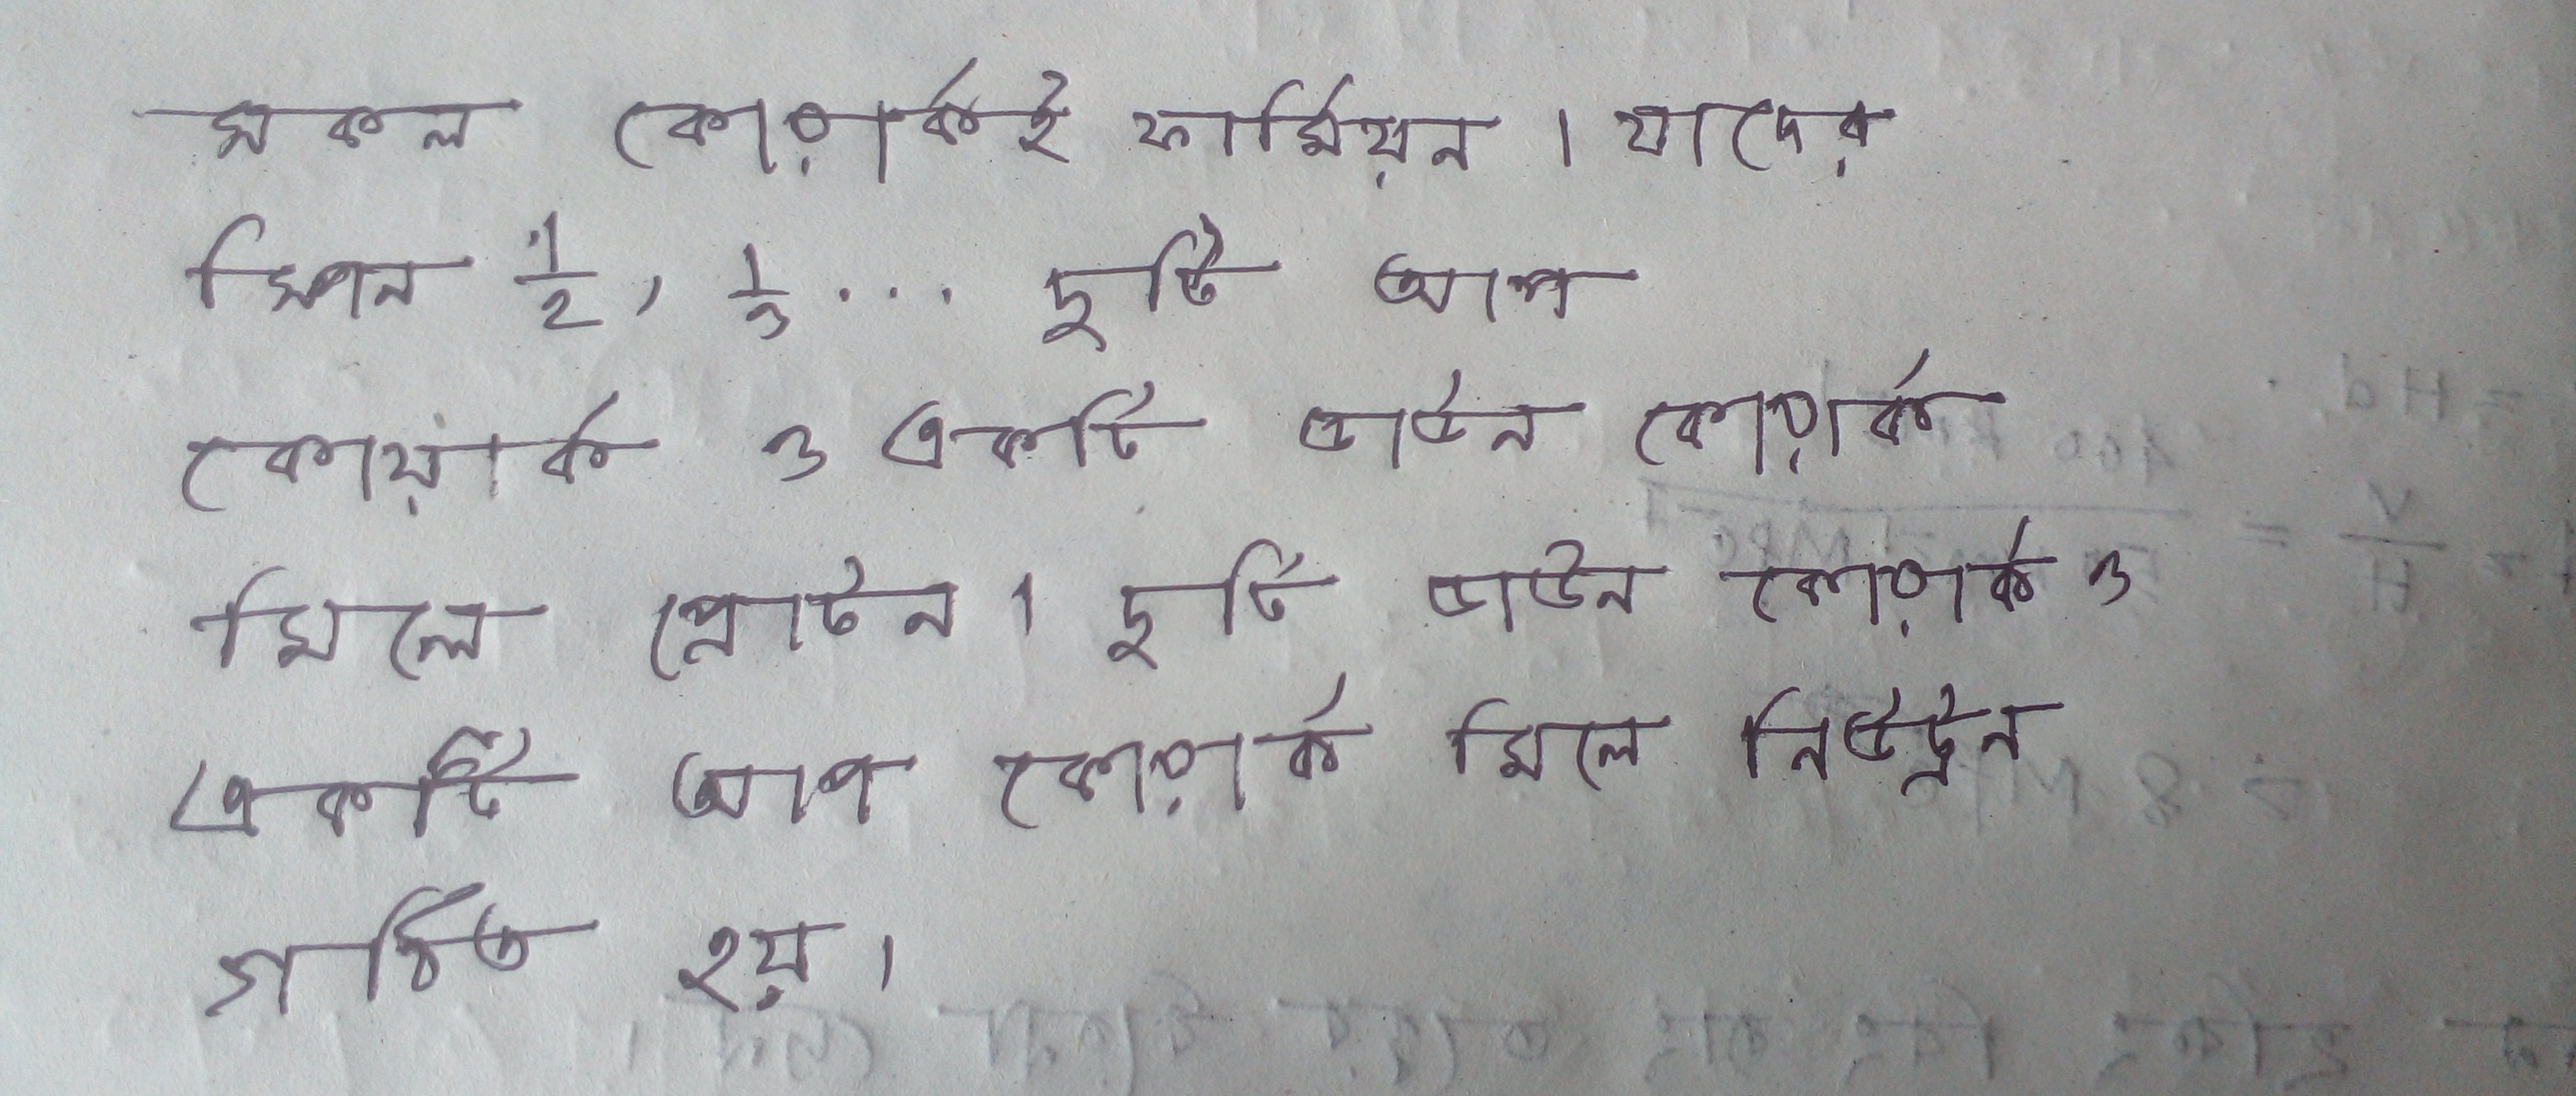 সকল কোয়ার্কই ফার্মিয়ন । যাদের
স্পিন 1/2, 1/3 ... দুটি আপ
কোয়ার্ক ও একটি ডাউন কোয়ার্ক
মিলে প্রোটন । দুটি ডাউন কোয়ার্ক ও
একটি আপ কোয়ার্ক মিলে নিউট্রন
গঠিত হয় ।